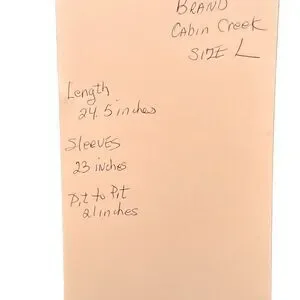 BRAND
Cabin Creek
SIZE L
Length
24.5 inches
SLEEVES
23 inches
Pit to Pit
21 inches